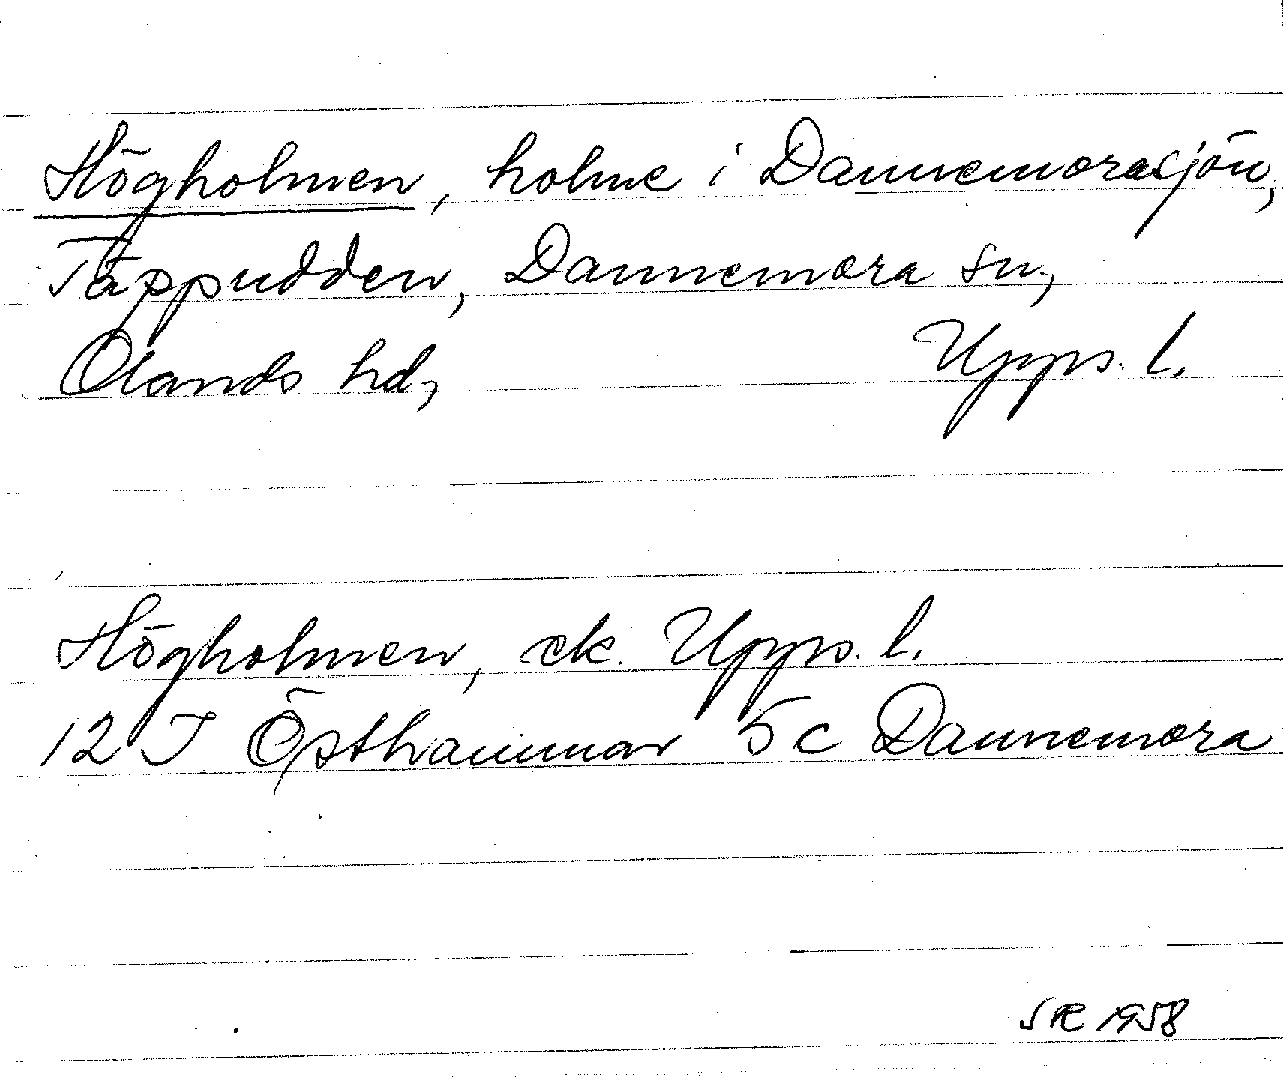 Högholmen, holme i Dannemorasjön,
Täppudden, Dannemora sn,
Olands hd, Upps. l.
Högholmen, ek. Upps. l.
12 I Östhammar 5c Dannemora
1958